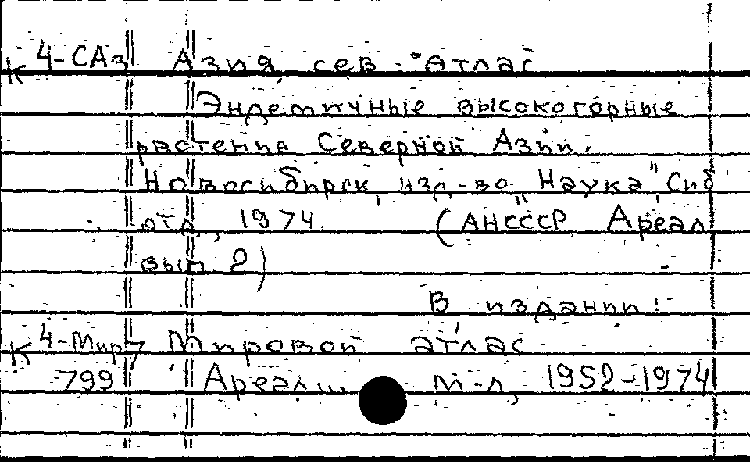 К 4-САз Азия, сев. - атлас
Эндемичные высокогорные
растения Северной Азии.
Новосибирск, изд-во "Наука" Сиб
отд., 1974 (АНСССР Ареал
вып. 2)
В издании:
К 4-Мир Мировой атлас
799 Ареал... М-Л, 1952-1974